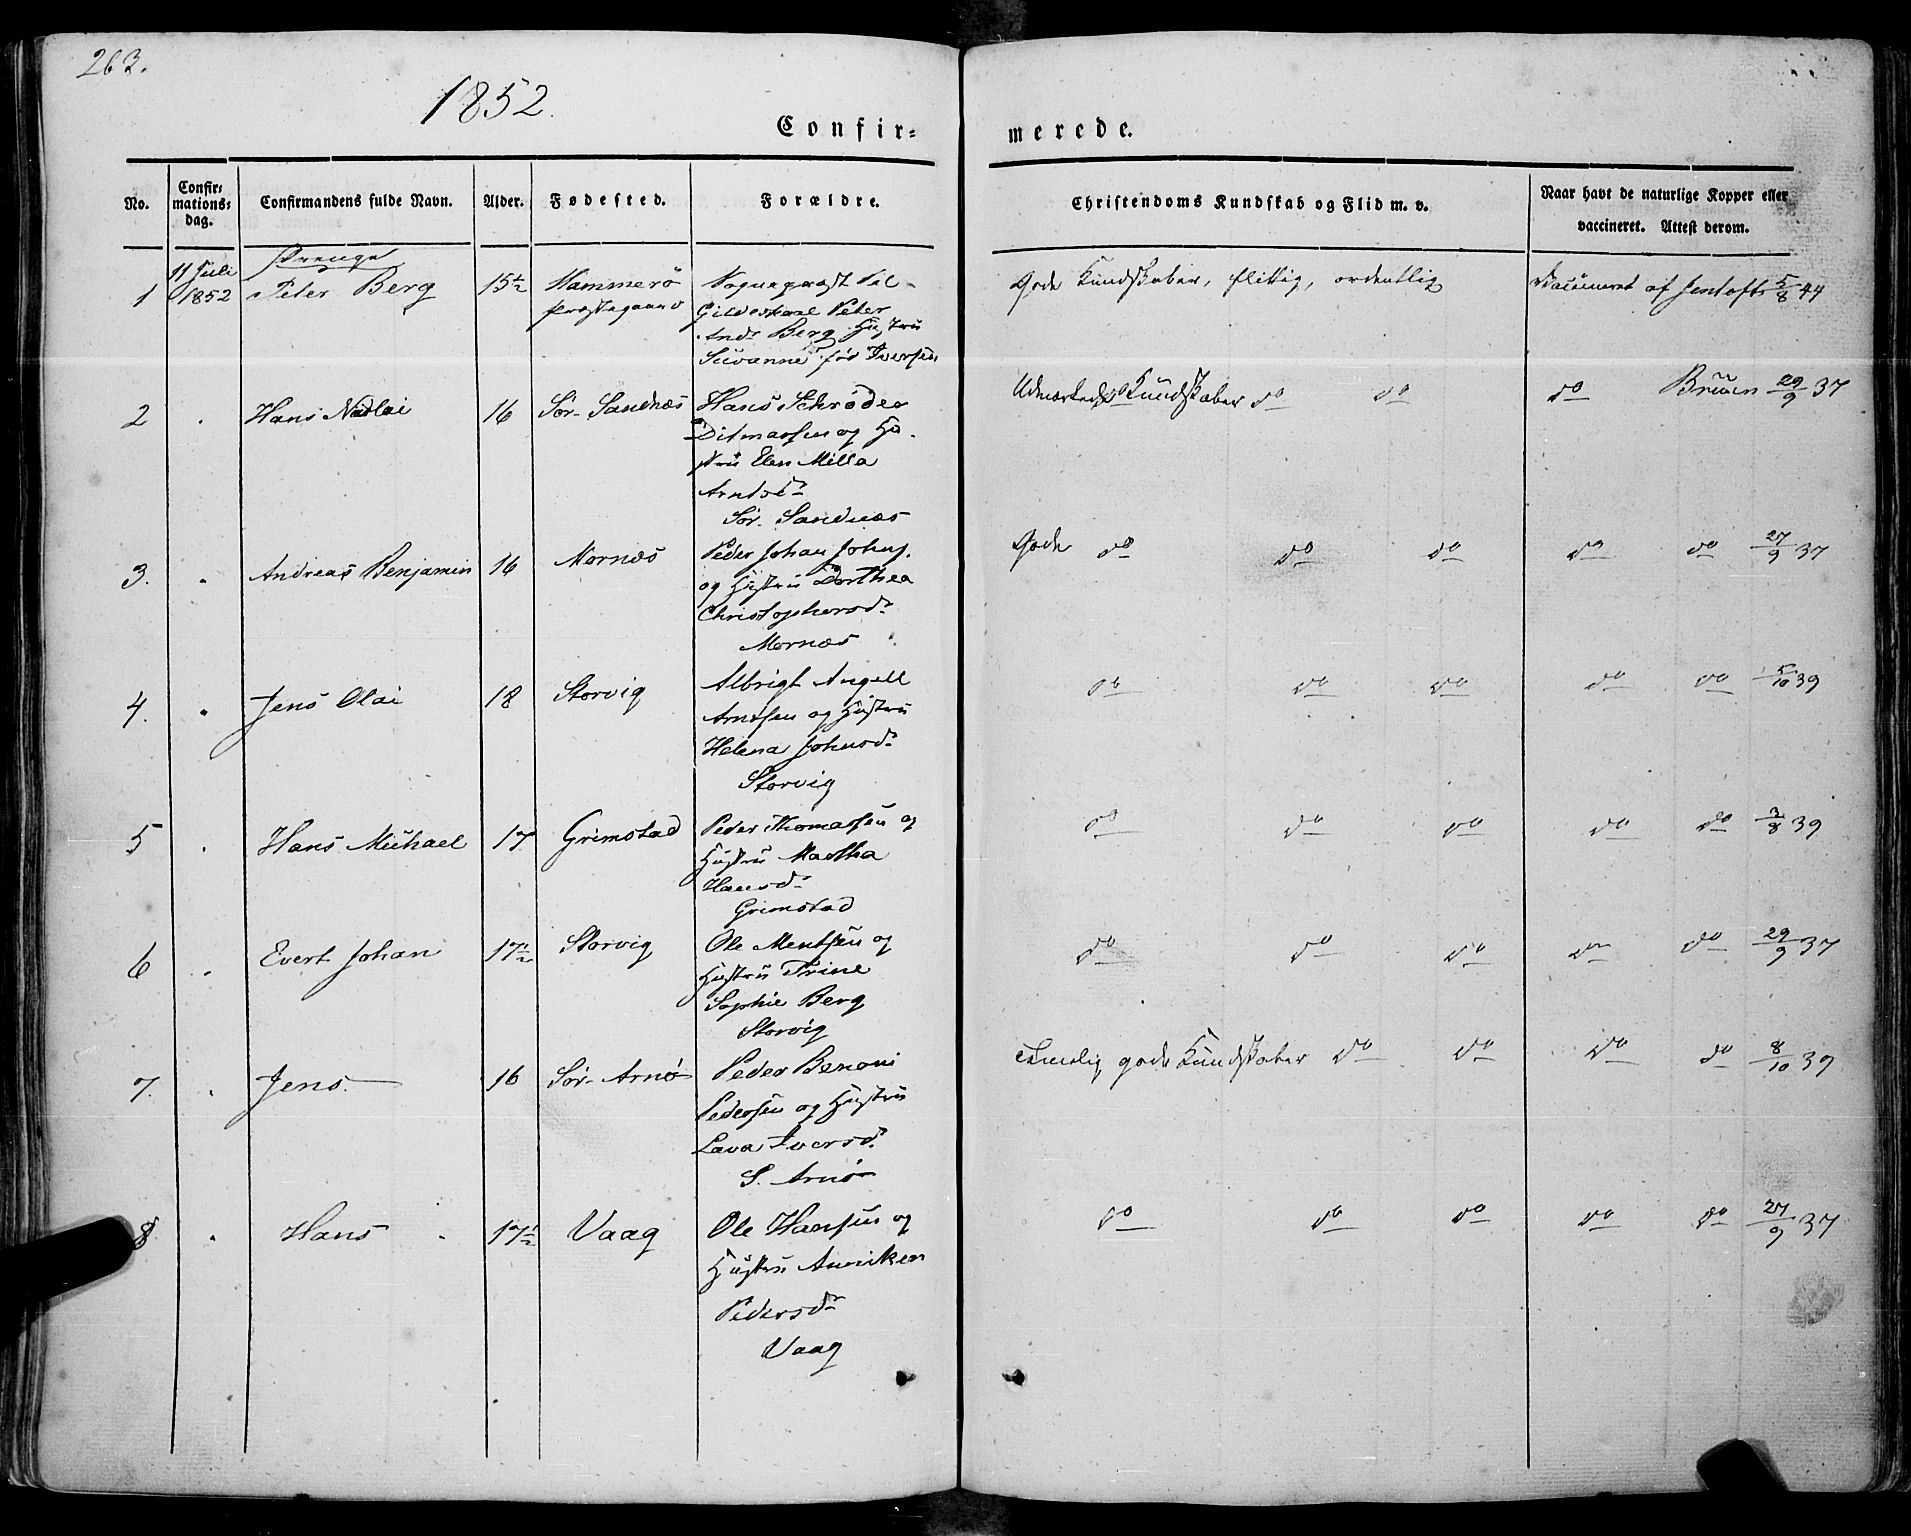 263.
1852.
Confir=
merede.
No.
Confir= mations= dag.
Confirmandens fulde Navn.
Alder.
Fødested.
Forældre.
Christendoms Kundskab og Flid m. v.
Naar havt de naturlige Kopper eller
vaccineret. Attest derom.
Drenge
1 11 Juli 1852 Peter Berg 15½ Hammerø Præstegaard
Sognepræst til
Gildeskaal Peter
Andr Berg Hustru
Susanne fød Iversen
Gode Kundskaber, flittig, ordentlig
Vaccineret af Jentoft 5/8 44
2 Hans Nicolai 16 Sør-Sandnæs
Hans Schrøder
Ditmarsen og Hu-
stru Elen Milla
Arntsd.
Sør-Sandnæs
Udmærkede Kundskaber do do
do Bruun 29/9 37
3. Andreas Benjamin 16 Mornæs
Peder Johan Johns.
og Hustru Dorthea
Christophersd.
Mornæs
Gode do do do
do do 27/9 37
4. Jens Olai 18 Storvig
Albrigt Angell
Arntsen og Hustru
Helena Johnsd.
Storvig
do do do
do do 5/10 39
5 Hans Michael 17 Grimstad
Peder Thomassen og
Hustru Martha
Hansd.
Grimstad
do do do
do do 3/8 39
6 Evert Johan 17½ Storvig
Ole Mentsen og
Hustru Trine
Sophie Berg
Storvig
do do do
do do 29/9 37
7. Jens 16 Sør-Arnø
Peder Benoni
Pedersen og Hustru
Lava Iversd.
S. Arnø
Temelig gode Kundskaber do do
do do 8/10 39
8 Hans 17½ Vaag
Ole Hansen og
Hustru Anniken
Pedersd.
Vaag
do do do
do do 27/9 37